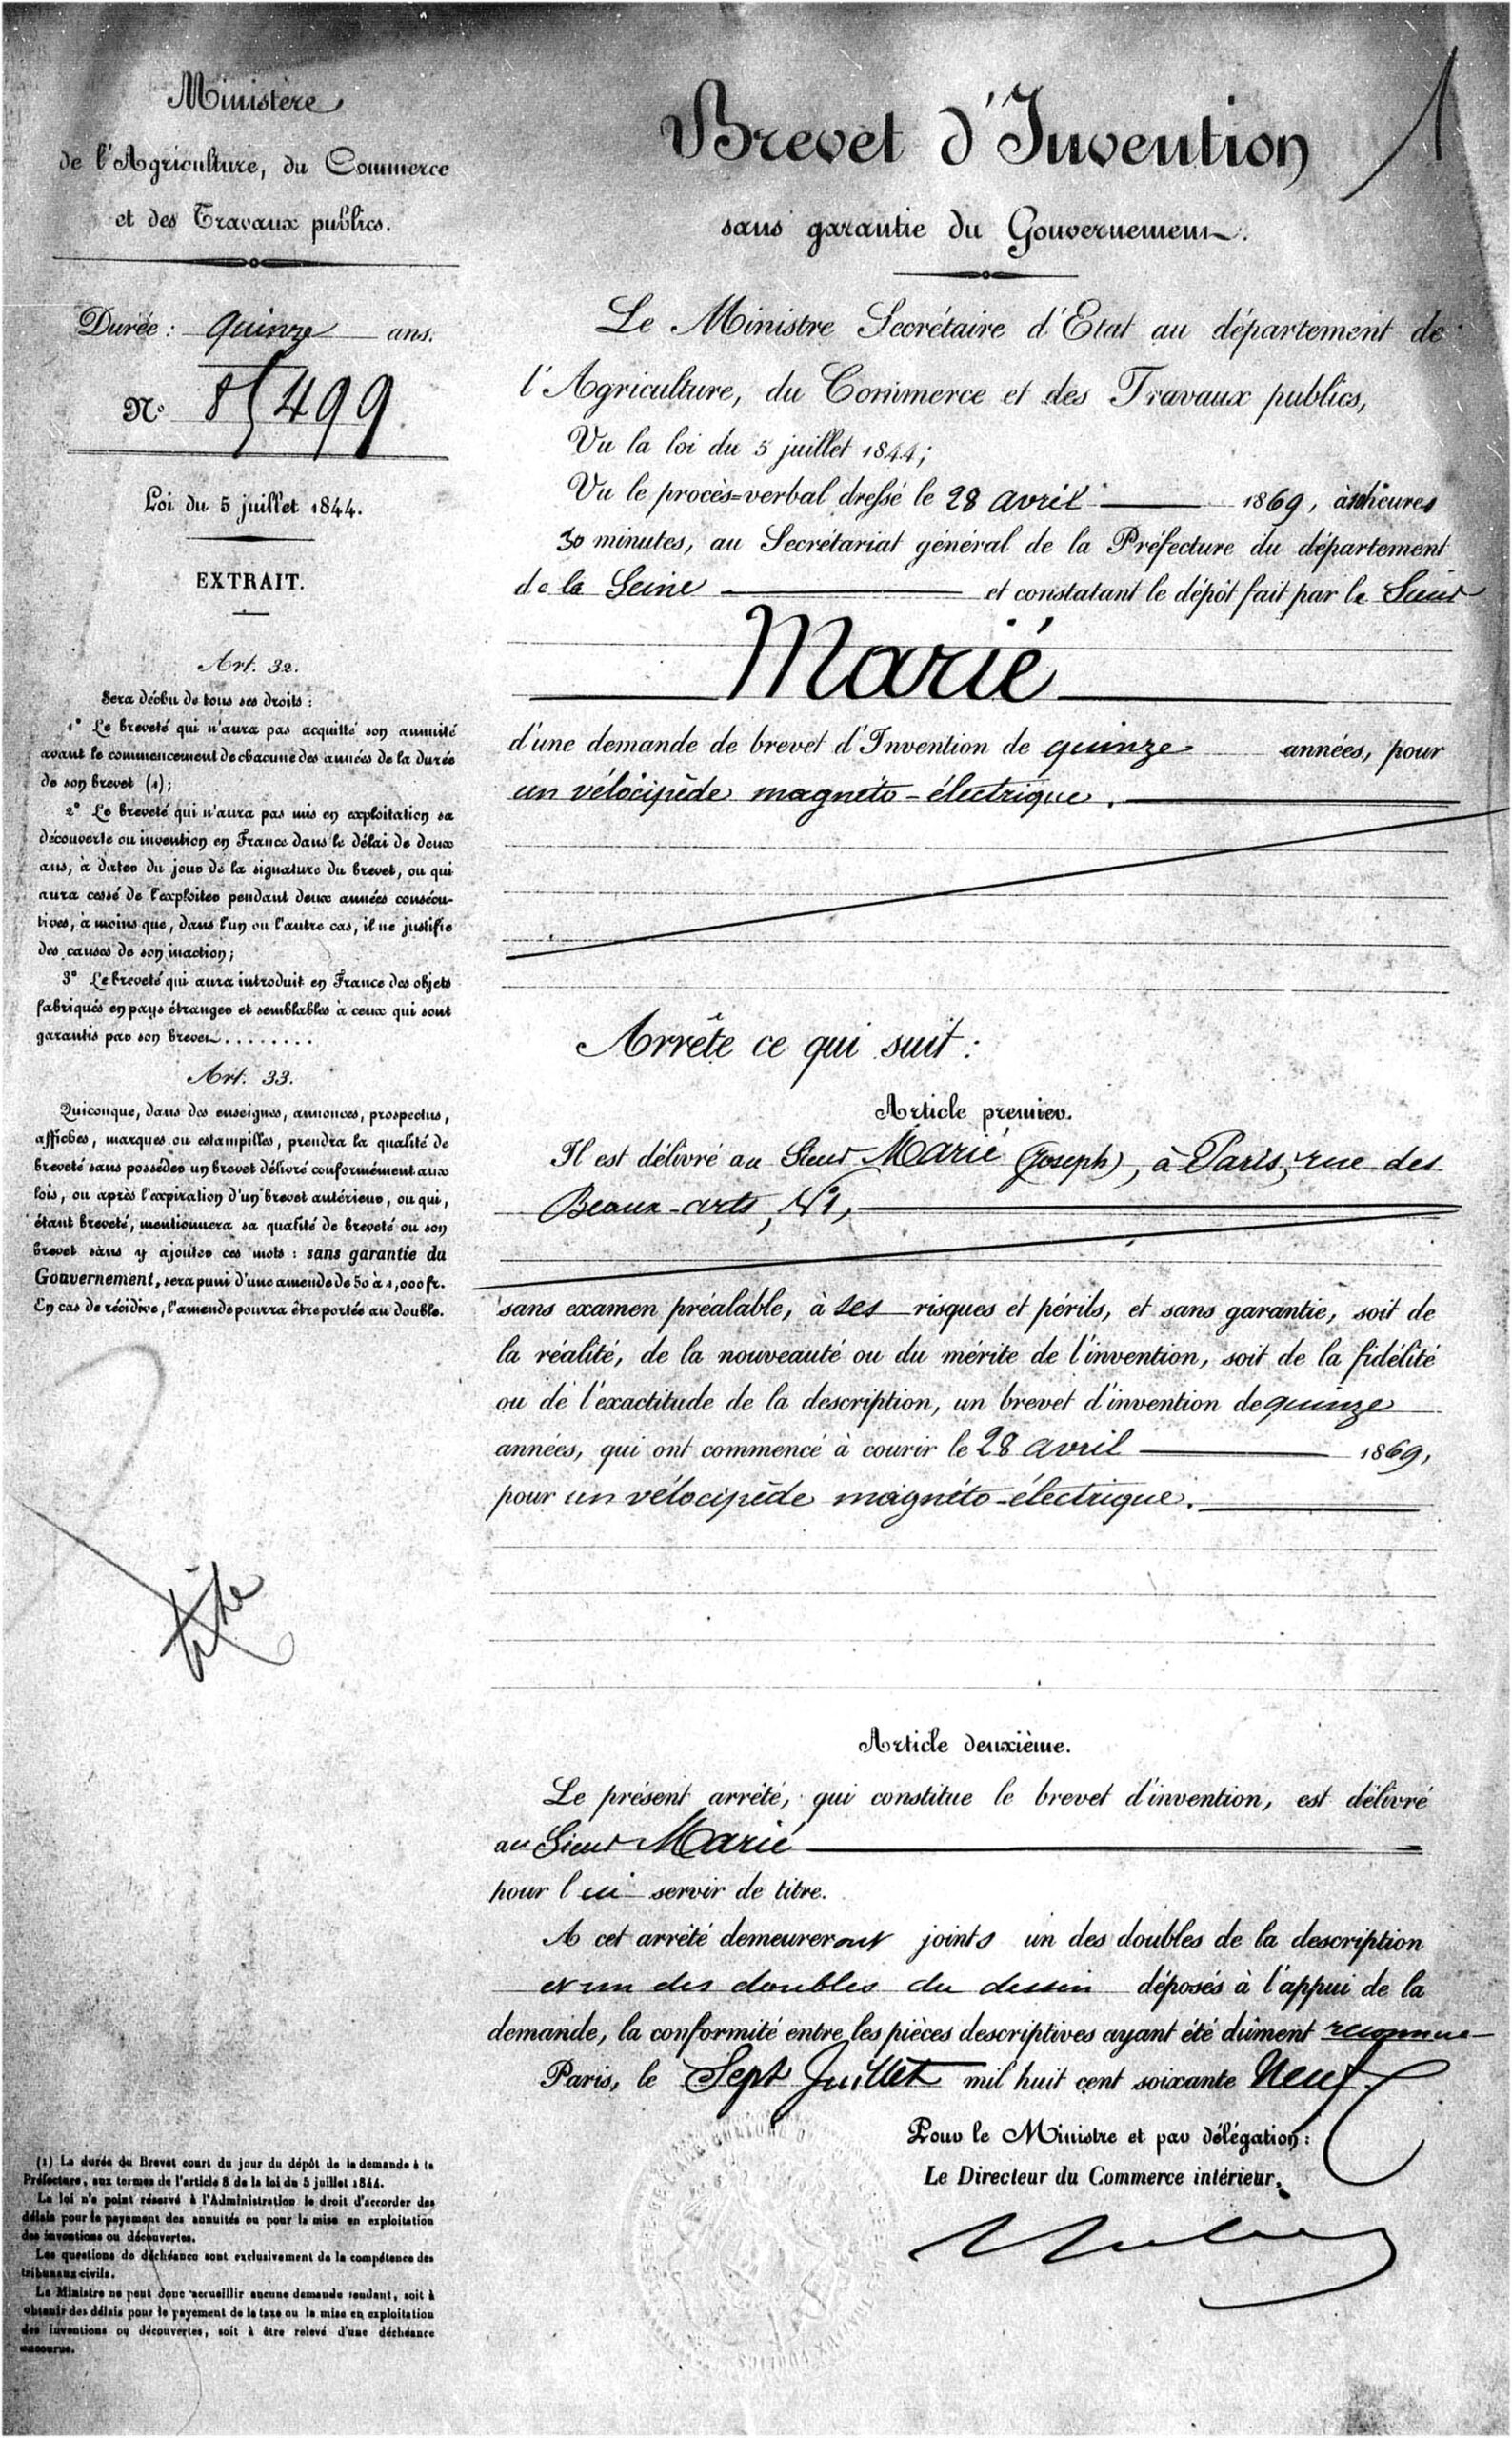 Ministère
de l'Agriculture, du Commerce
et des Travaux publics.
Durée : quinze ans.
N° 85499
Loi du 5 juillet 1844.
EXTRAIT.
Art. 32.
Sera déchu de tous ses droits :
1° Le breveté qui n'aura pas acquitté son annuité
avant le commencement de chacune des années de la durée
de son brevet (1);
2° Le breveté qui n'aura pas mis en exploitation sa
découverte ou invention en France dans le délai de deux
ans, à dater du jour de la signature du brevet, ou qui
aura cessé de l'exploiter pendant deux années consécu-
tives, à moins que, dans l'un ou l'autre cas, il ne justifie
des causes de son inaction;
3° Le breveté qui aura introduit en France des objets
fabriqués en pays étranger et semblables à ceux qui sont
garantis par son brevet........
Art. 33.
Quiconque, dans des enseignes, annonces, prospectus,
affiches, marques ou estampilles, prendra la qualité de
breveté sans posséder un brevet délivré conformément aux
lois, ou après l'expiration d'un brevet antérieur, ou qui,
étant breveté, mentionnera sa qualité de breveté ou son
brevet sans y ajouter ces mots : sans garantie du
Gouvernement, sera puni d'une amende de 50 à 1,000 fr.
En cas de récidive, l'amende pourra être portée au double.
titre
(1) La durée du Brevet court du jour du dépôt de la demande à la
Préfecture, aux termes de l'article 8 de la loi du 5 juillet 1844.
La loi n'a point réservé à l'Administration le droit d'accorder des
délais pour le payement des annuités ou pour la mise en exploitation
des inventions ou découvertes.
Les questions de déchéance sont exclusivement de la compétence des
tribunaux civils.
Le Ministre ne peut donc accueillir aucune demande tendant, soit à
obtenir des délais pour le payement de la taxe ou la mise en exploitation
des inventions ou découvertes, soit à être relevé d'une déchéance
encourue.
1
Brevet d'Invention
sans garantie du Gouvernement.
Le Ministre Secrétaire d'Etat au département de
l'Agriculture, du Commerce et des Travaux publics,
Vu la loi du 5 juillet 1844;
Vu le procès-verbal dressé le 28 avril 1869, à heures
30 minutes, au Secrétariat général de la Préfecture du département
de la Seine et constatant le dépôt fait par le Sieur
Marié
d'une demande de brevet d'Invention de quinze années, pour
un vélocipède magnéto-électrique.
Arrête ce qui suit :
Article premier.
Il est délivré au Sieur Marié (Joseph), à Paris, rue des
Beaux-arts, N°1,
sans examen préalable, à ses risques et périls, et sans garantie, soit de
la réalité, de la nouveauté ou du mérite de l'invention, soit de la fidélité
ou de l'exactitude de la description, un brevet d'invention de quinze
années, qui ont commencé à courir le 28 avril 1869,
pour un vélocipède magnéto-électrique.
Article deuxième.
Le présent arrêté, qui constitue le brevet d'invention, est délivré
au Sieur Marié
pour lui servir de titre.
A cet arrêté demeureront joints un des doubles de la description
et un des doubles du dessin déposés à l'appui de la
demande, la conformité entre les pièces descriptives ayant été dûment reconnue
Paris, le Sept Juillet mil huit cent soixante Neuf.
Pour le Ministre et par délégation :
Le Directeur du Commerce intérieur,